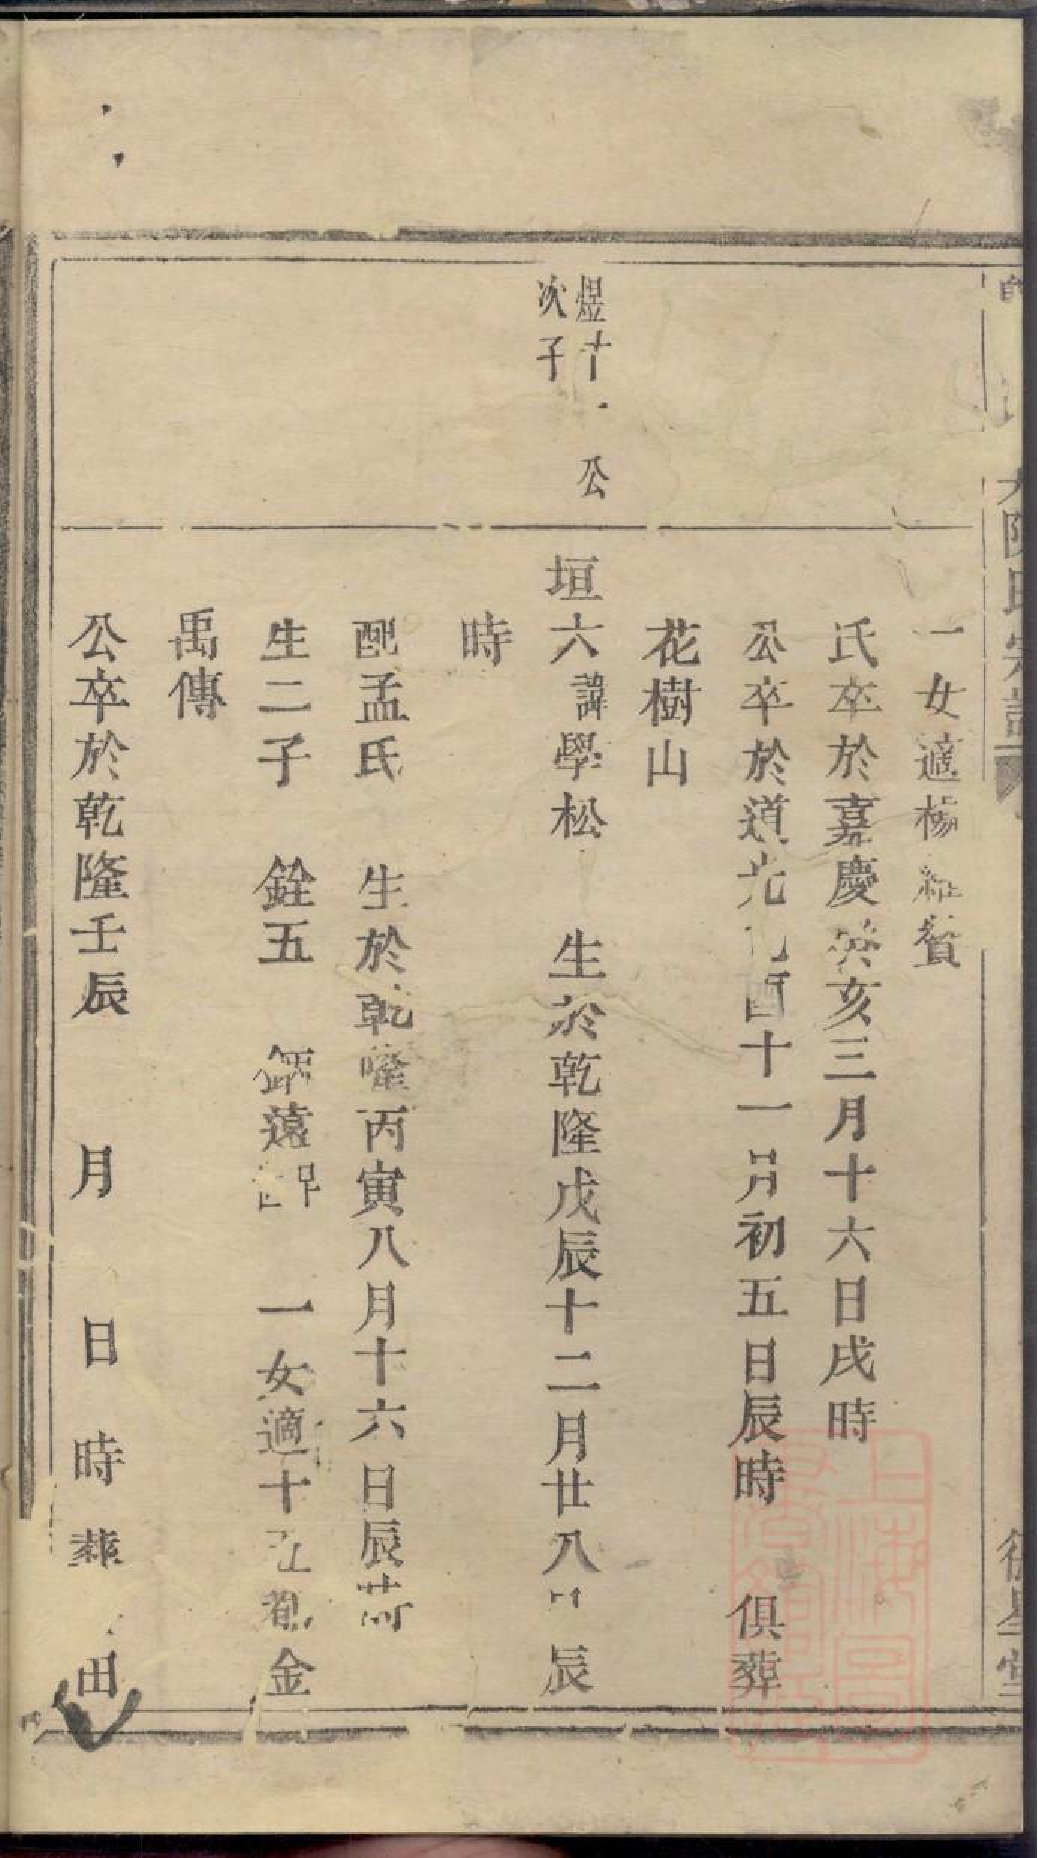 陳氏宗譜
一女適楊
氏卒於嘉慶癸亥三月十六日戌時
公卒於道光 酉十一月初五日辰時 俱葬
花樹山
煜十 公
次子
垣六諱學松 生於乾隆戊辰十二月廿八日 辰
時
配孟氏 生於乾隆丙寅八月十六日辰時
生二子 銓五 遠 一女適十五都金
禹傳
公卒於乾隆壬辰 月 日 時葬 由